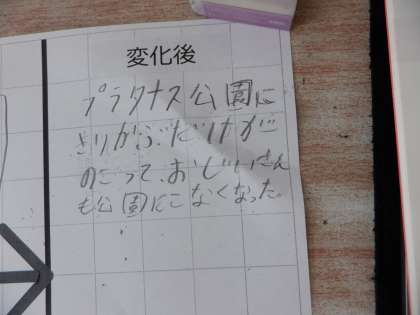 変化後
プラタナス公園に
きりかぶだけが
のこって、おじいさん
も公園にこなくなった。